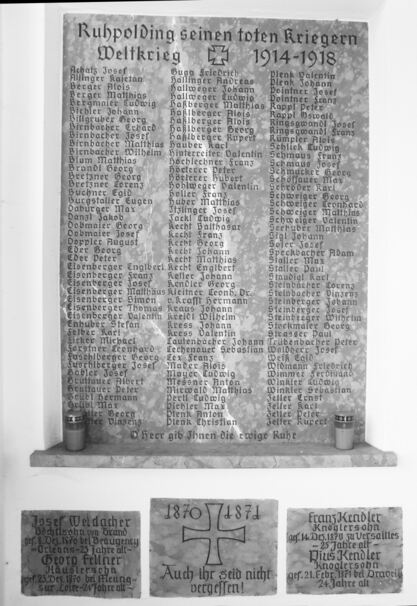 Ruhpolding seinen toten Kriegern
Weltkrieg 1914-1918
Achatz Josef
Aitinger Kajetan
Berger Alois
Berger Matthias
Bergmaier Ludwig
Bichler Johann
Billgruber Georg
Birnbacher Erhard
Birnbacher Josef
Birnbacher Matthias
Birnbacher Wilhelm
Blum Matthias
Brandl Georg
Bretzner Georg
Bretzner Lorenz
Buchner Egid
Burgstaller Eugen
Daburger Max
Danzl Jakob
Dobmaier Georg
Dobmaier Josef
Doppler August
Eder Georg
Eder Peter
Eisenberger Engelbert
Eisenberger Franz
Eisenberger Josef
Eisenberger Matthäus
Eisenberger Simon
Eisenberger Thomas
Eisenberger Valentin
Enhuber Stefan
Felber Karl
Michael
Leonhard
Georg
Josef
Josef
Albert
Peter
Hermann
Max
Georg
Vinzenz
Gugg Friedrich
Hallinger Andreas
Hallweger Johann
Hallweger Ludwig
Haßlberger Matthias
Haßlberger Alois
Haßlberger Alois
Haßlberger Georg
Haßlberger Rupert
Hauber Karl
Hinterreiter Valentin
Höchlechner Franz
Höderer Peter
Höterer Hubert
Hohlweger Valentin
Holler Franz
Huber Matthias
Itzlinger Josef
Jackl Ludwig
Kecht Balthasar
Kecht Franz
Kecht Georg
Kecht Johann
Kecht Matthias
Kecht Engelbert
Keller Johann
Kendler Georg
Kleitner Leonh. Dr.
v. Krafft Hermann
Kraus Johann
Kreidl Wilhelm
Kress Johann
Kress Valentin
Lautenbacher Johann
Lechenauer Sebastian
Lex Franz
Mader Alois
Mayer Ludwig
Messner Anton
Mitwald Matthias
Oertl Ludwig
Pichler Max
Plenk Anton
Plenk Christian
Plenk Valentin
Plenk Johann
Pointner Josef
Pointner Franz
Rappl Peter
Rappl Oswald
Ringsgwandl Josef
Ringsgwandl Franz
Rumpler Alois
Schlich Ludwig
Schmaus Franz
Schmaus Josef
Schmucker Georg
Schoßauer Max
Schröder Karl
Schweiger Georg
Schweiger Leonhard
Schweiger Matthias
Schweiger Valentin
Seehuber Matthias
Sizl Johann
Soier Josef
Speckbacher Adam
Staller Max
Staller Paul
Staudigl Karl
Steinbacher Lorenz
Steinbacher Vinzenz
Steinberger Johann
Steinberger Josef
Steinberger Wilhelm
Stockmaier Georg
Strasser Paul
Trübenbacher Peter
Waldherr Josef
Weiß Egid
Widmann Friedrich
Wimmer Ferdinand
Winkler Ludwig
Winkler Sebastian
Zeller Ernst
Zeller Karl
Zeller Peter
Zeller Rupert
O Herr gib Ihnen die ewige Ruhe
Josef Weldacher
Bächlsohn von Brand
gef. 8. Dez. 1870 bei Beaugency
- Orleans - 25 Jahre alt -
Georg Fellner
Häuslerssohn
gef. 23. Dez. 1870 bei Meung
sur Loire - 24 Jahre alt -
1870 1871
Auch ihr seid nicht
vergessen!
Franz Kendler
Knoglersohn
gest. 14. Dez. 1870 zu Versailles
- 25 Jahre alt -
Pius Kendler
Knoglersohn
gef. 21. Febr. 1871 bei Draveil
- 24 Jahre alt